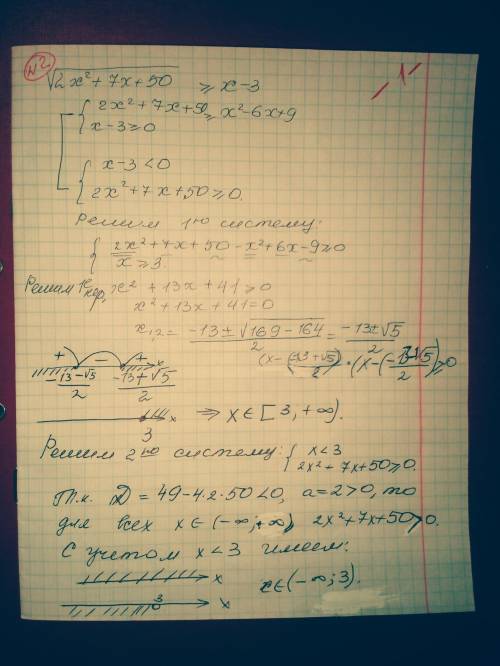 N2
√2x² + 7x + 50 ≥ x - 3
-1-
2x² + 7x + 50 ≥ x² - 6x + 9
x - 3 ≥ 0
x - 3 < 0
2x² + 7x + 50 ≥ 0.
Решим 1-ю систему:
2x² + 7x + 50 - x² + 6x - 9 ≥ 0
x ≥ 3.
Решим нер, x² + 13x + 41 ≥ 0
x² + 13x + 41 = 0
x₁,₂ = (-13 ± √(169 - 164))/2 = (-13 ± √5)/2
(x - (-13 + √5)/2) · (x - (-13 - √5)/2) ≥ 0
+ - + x
(-13 - √5)/2 (-13 + √5)/2
3 x ⇒ x ∈ [3, +∞).
Решим 2ую систему: { x < 3
2x² + 7x + 50 ≥ 0.
Т.к. D = 49 - 4·2·50 < 0, a = 2 > 0, то
для всех x ∈ (-∞; +∞) 2x² + 7x + 50 > 0.
С учетом x < 3 имеем:
x
3 x x ∈ (-∞; 3).